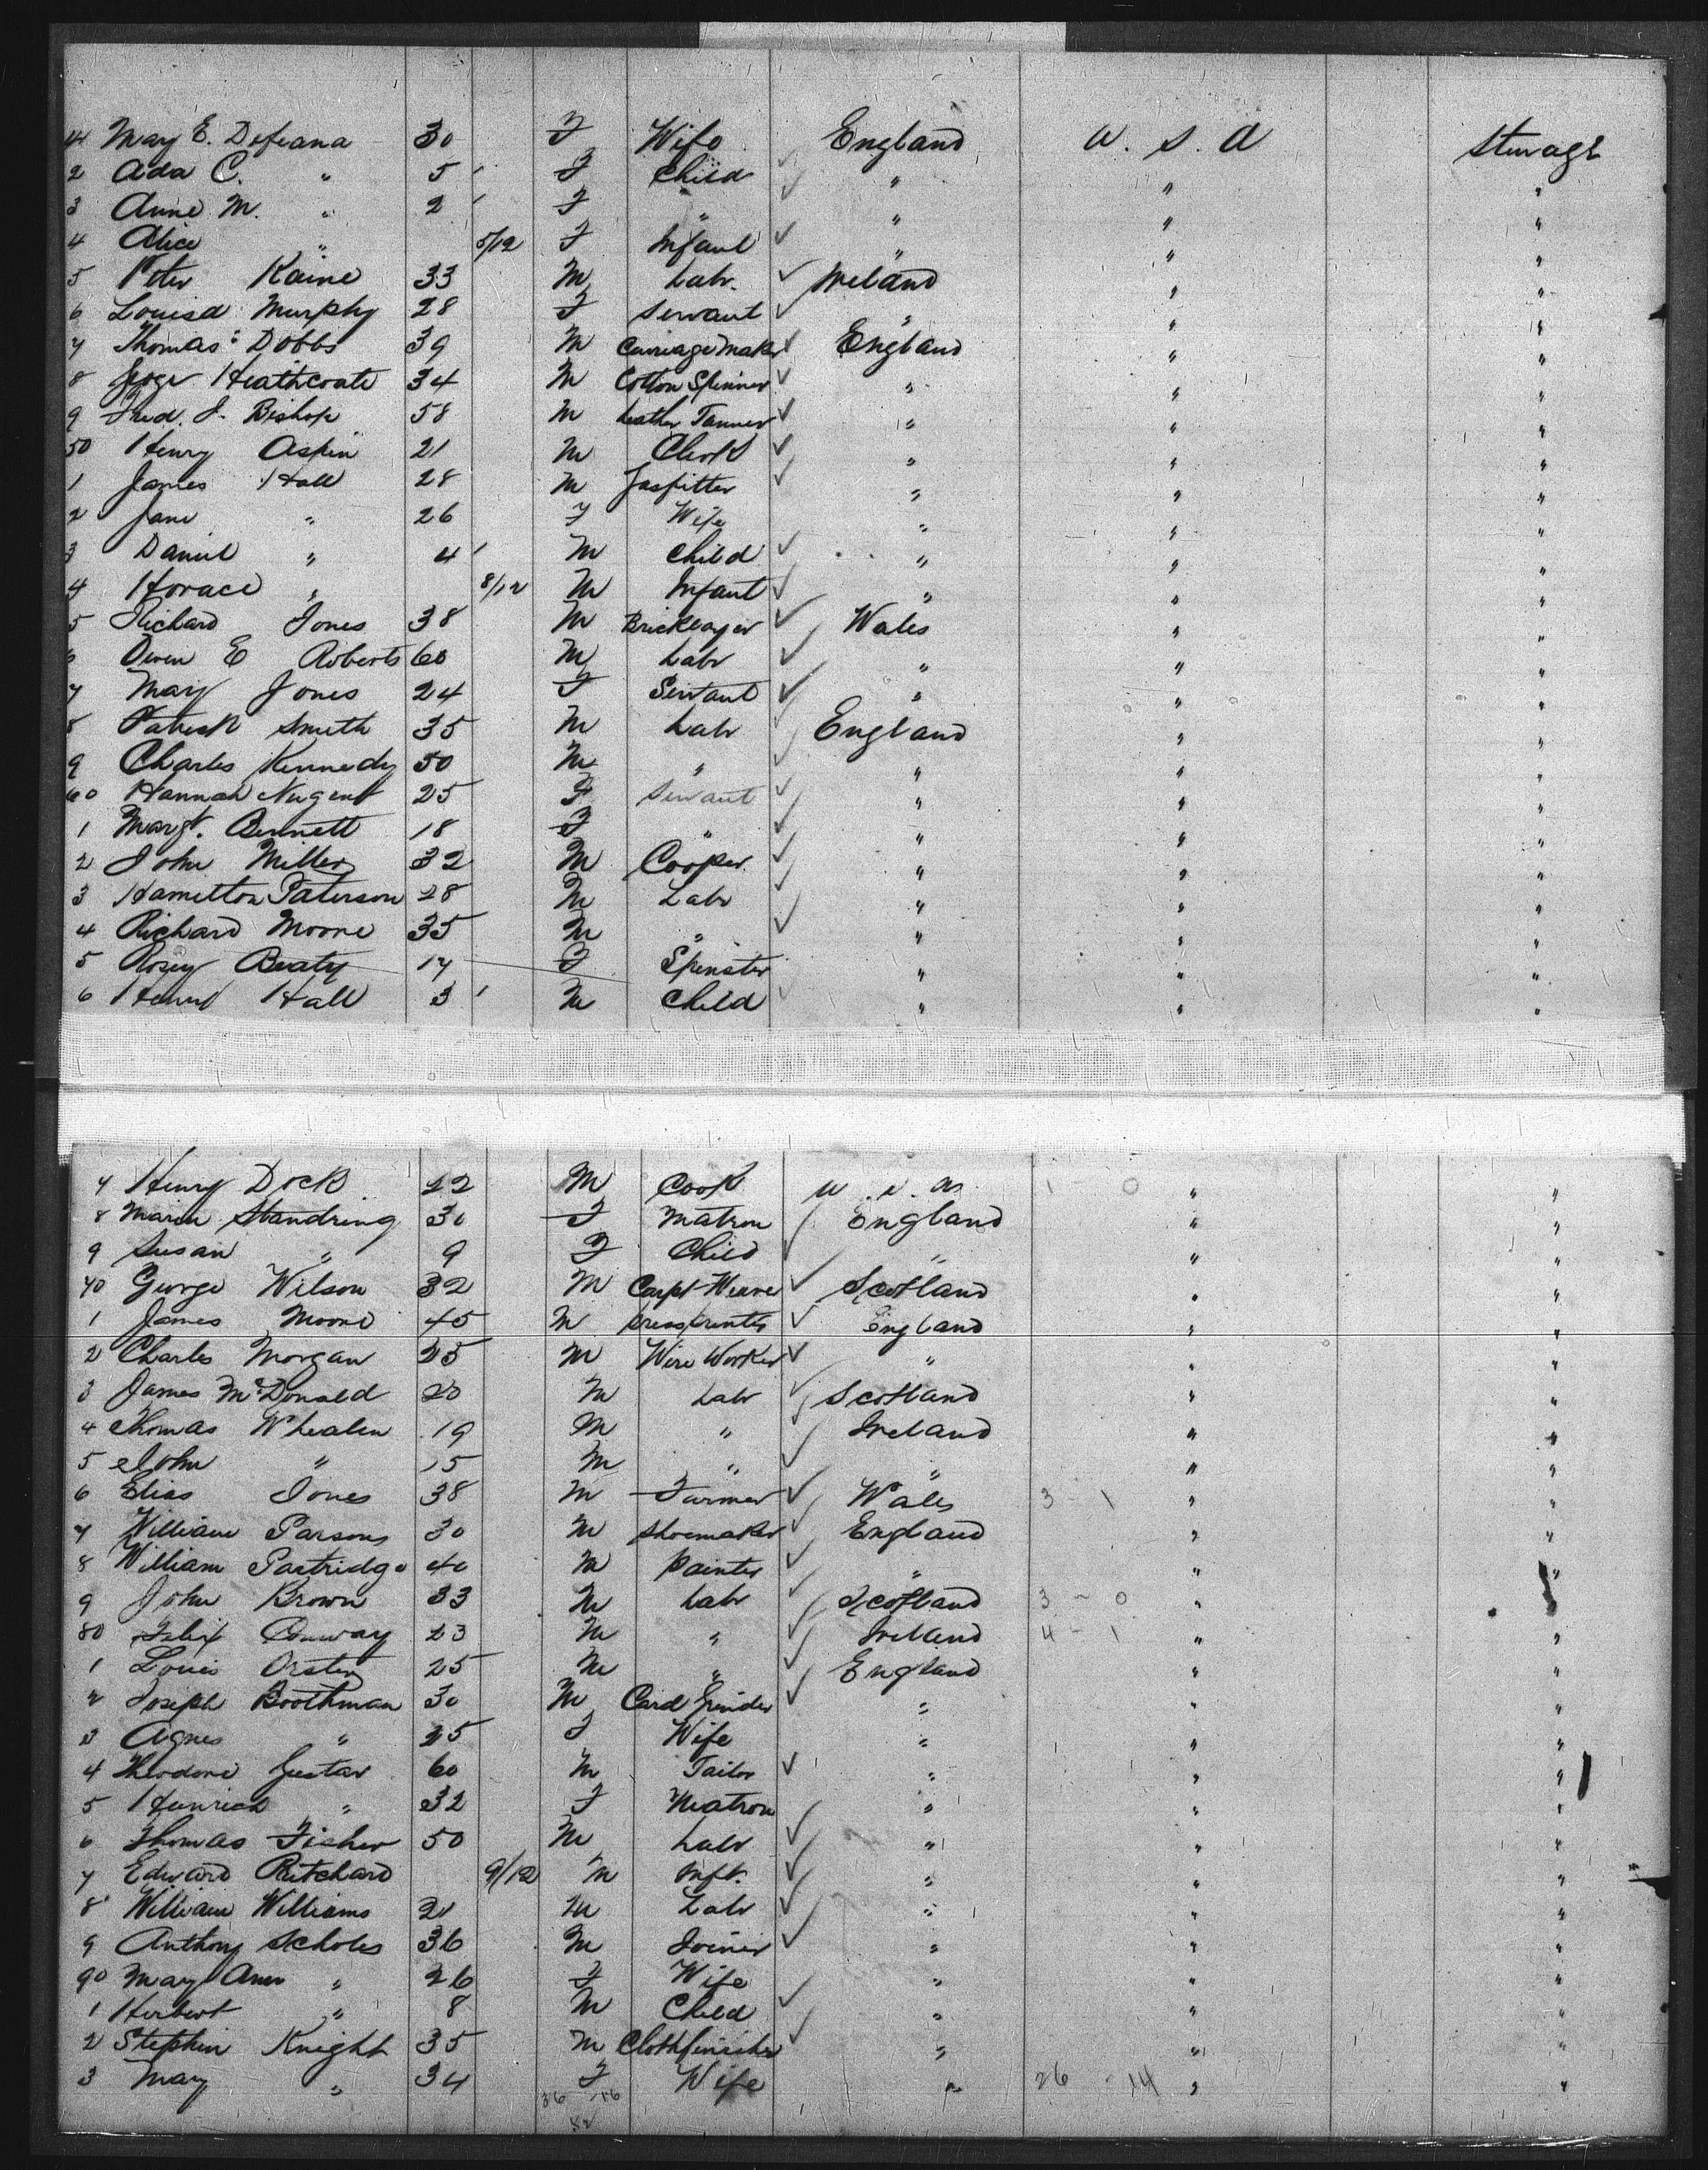 41 Mary E. Defreana 30 F Wife England U. S. A Steerage
2 Ada C. " 5 F Child " " "
3 Anne M. " 2 F " " " "
4 Alice " 5/12 F Infant " " "
5 Peter Kaine 33 M Labr. Ireland " "
6 Louisa Murphy 28 F Servant " " "
7 Thomas Dobbs 39 M Carriage Maker England " "
8 Heathcoate 34 M Cotton Spinner " " "
9 Fred. J. Bishop 58 M Leather Tanner " " "
50 Henry Aspin 21 M Clerk " " "
1 James Hall 28 M Gasfitter " " "
2 Jane " 26 F Wife " " "
3 Daniel " 4 M Child " " "
4 Horace " 8/12 M Infant " " "
5 Richard Jones 38 M Bricklayer Wales " "
6 Owen E Roberts 60 M Labr " " "
7 Mary Jones 24 F Servant " " "
8 Patrick Smith 35 M Labr England " "
9 Charles Kennedy 50 M " " " "
60 Hannah Nugent 25 F Servant " " "
1 Margt. Bennett 18 F " " " "
2 John Miller 32 M Cooper " " "
3 Hamilton Paterson 28 M Labr " " "
4 Richard Moore 35 M " " " "
5 Rosey Beaty 17 F Spinster " " "
6 Henry Hall 3 M Child " " "
7 Henry Dock 22 M Cook U. S. A. 1 - 0 " "
8 Maria Standring 30 F Matron England " "
9 Susan " 9 F Child " " "
70 George Wilson 32 M Carpt Weaver Scotland " "
1 James Moore 45 M Pressprinter England " "
2 Charles Morgan 25 M Wire Worker " " "
3 James McDonald 20 M Labr Scotland " "
4 Thomas Whealen 19 M " Ireland " "
5 John " 15 M " " " "
6 Elias Jones 38 M Farmer Wales 3 - 1 " "
7 William Parsons 30 M Shoemaker England " "
8 William Partridge 40 M Painter " " "
9 John Brown 33 M Labr Scotland 3 - 0 " "
80 Felix Conway 23 M " Ireland 4 - 1 " "
1 Louis Orsten 25 M " England " "
2 Joseph Boothman 30 M Card Grinder " " "
3 Agnes " 25 F Wife " " "
4 Theodore Gustav 60 M Tailor " " "
5 Heinrich " 32 F Matron " " "
6 Thomas Fisher 50 M Labr " " "
7 Edward Pritchard 9/12 M Inft. " " "
8 William Williams 21 M Labr " " "
9 Anthony Scholes 36 M Joiner " " "
90 Mary Ann " 26 F Wife " " "
1 Herbert " 8 M Child " " "
2 Stephen Knight 35 M Clothfinisher " " "
3 Mary " 34 F Wife " 26 - 14 " "
36 - 16
52